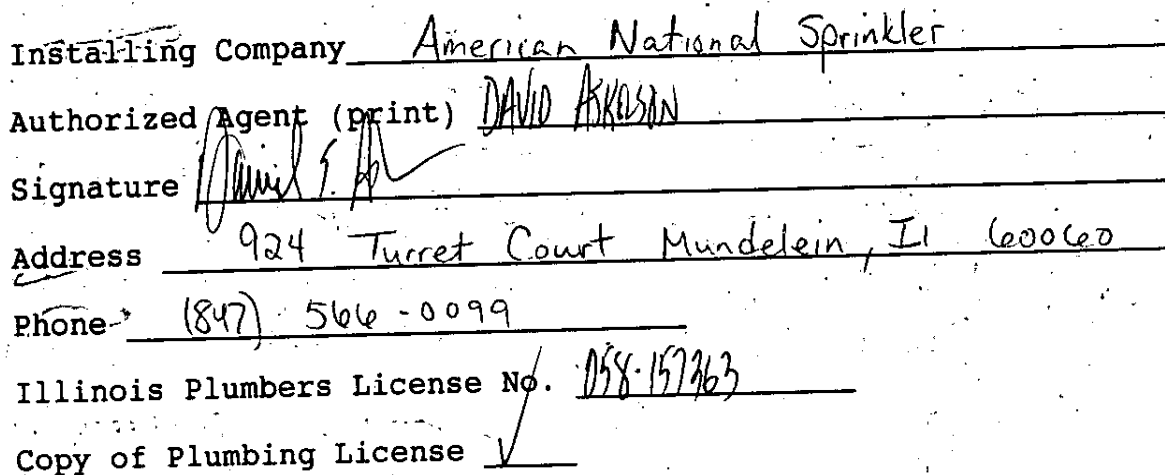 Installing Company American National Sprinkler
Authorized Agent (print) DAVID
Signature
Address 924 Turret Court Mundelein, Il 60060
Phone (847) 566-0099
Illinois Plumbers License No. 058-157363
Copy of Plumbing License ✓